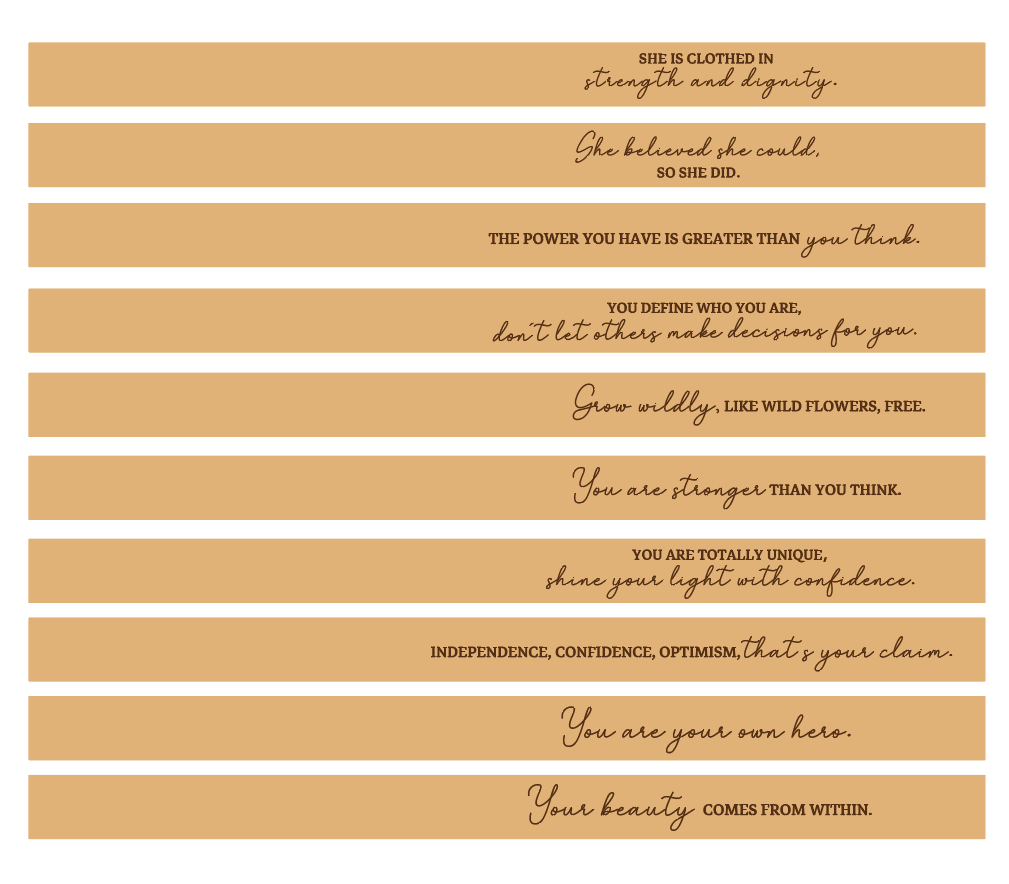 SHE IS CLOTHED IN
strength and dignity.
She believed she could,
SO SHE DID.
THE POWER YOU HAVE IS GREATER THAN you think.
YOU DEFINE WHO YOU ARE,
don't let others make decisions for you.
Grow wildly, LIKE WILD FLOWERS, FREE.
You are stronger THAN YOU THINK.
YOU ARE TOTALLY UNIQUE,
shine your light with confidence.
INDEPENDENCE, CONFIDENCE, OPTIMISM, that's your claim.
You are your own hero.
Your beauty COMES FROM WITHIN.